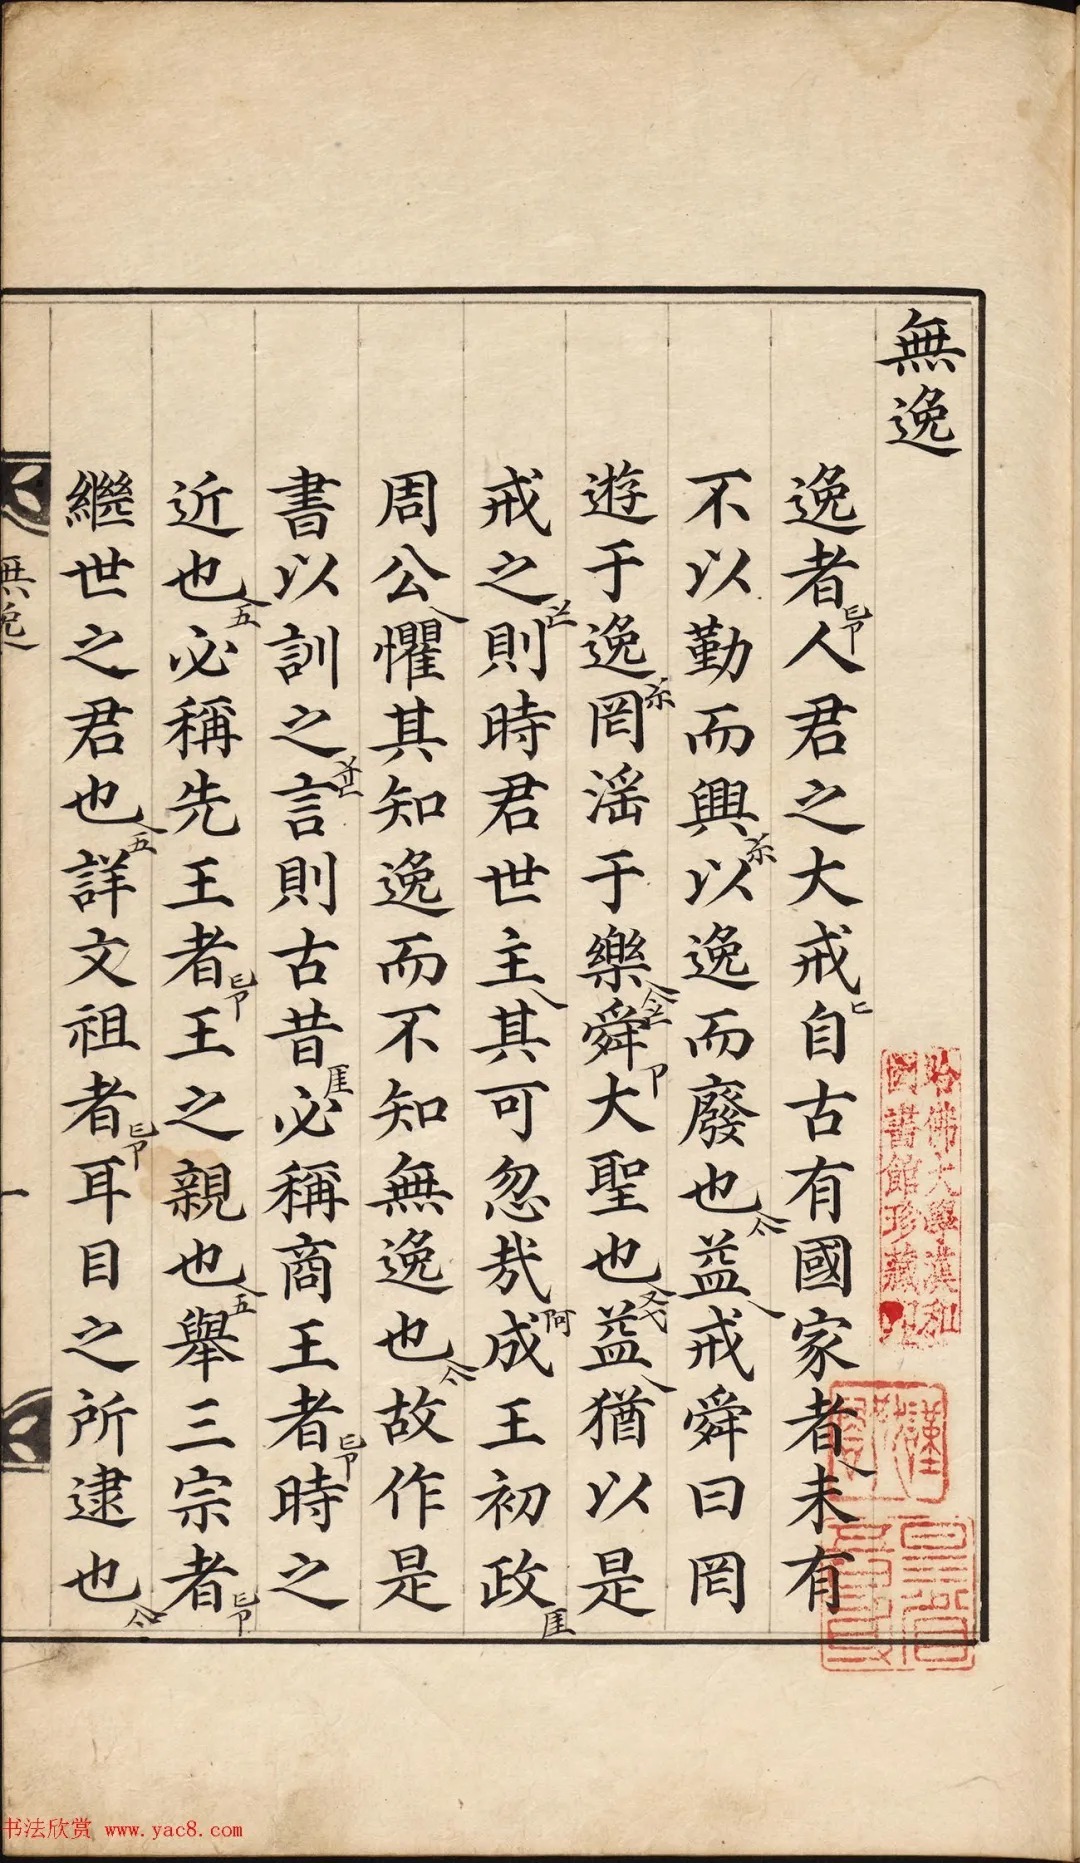 無逸
逸者人君之大戒自古有國家者未有
不以勤而興以逸而廢也益戒舜曰罔
遊于逸罔淫于樂舜大聖也益猶以是
戒之則時君世主其可忽哉成王初政
周公懼其知逸而不知無逸也故作是
書以訓之言則古昔必稱商王者時之
近也必稱先王者王之親也舉三宗者
繼世之君也詳文祖者耳目之所逮也
無逸
一
哈佛大學漢和
圖書館珍藏印
书法欣赏 www.yac8.com